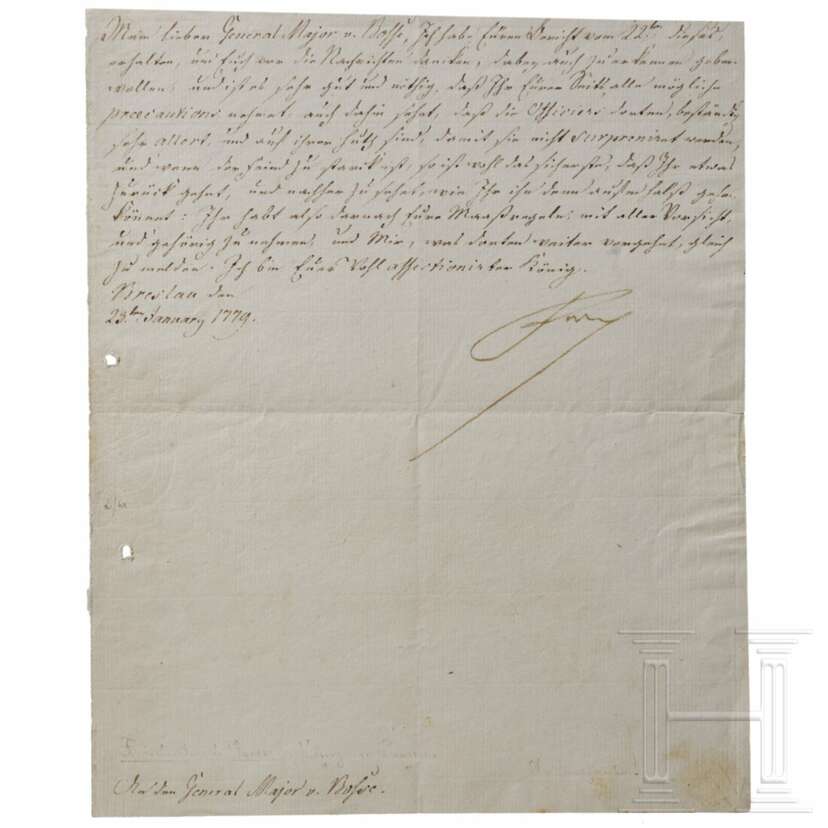 Mein lieber General Major v. Bosse, Ich habe Euren Bericht vom 22ten dieses,
erhalten, und Euch vor die Nachrichten danken, dabey auch zu erkennen geben
wollen, und ist es sehr gut und nöthig, daß Ihr Eurer Seits alle mögliche
precautions nehmet, auch dahin sehet, daß die Officiers dorten, beständig
sehr allert, und auf ihrer Huth sind, damit sie nicht surpreniret werden,
und wenn der Feind zu stark ist, so ist wohl das sicherste, daß Ihr etwas
zurück gehet, und nachher zu sehet, wie Ihr ihn denn
könnet: Ihr habt also darnach Eure Maaßregeln, mit aller Vorsicht,
und gehörig zu nehmen, und Mir, was dorten weiter vorgehet, gleich
zu melden. Ich bin Euer Wohl affectionirter König.
Breslau den
23ten January 1779.
Fch
An den General Major v. Bosse.
H